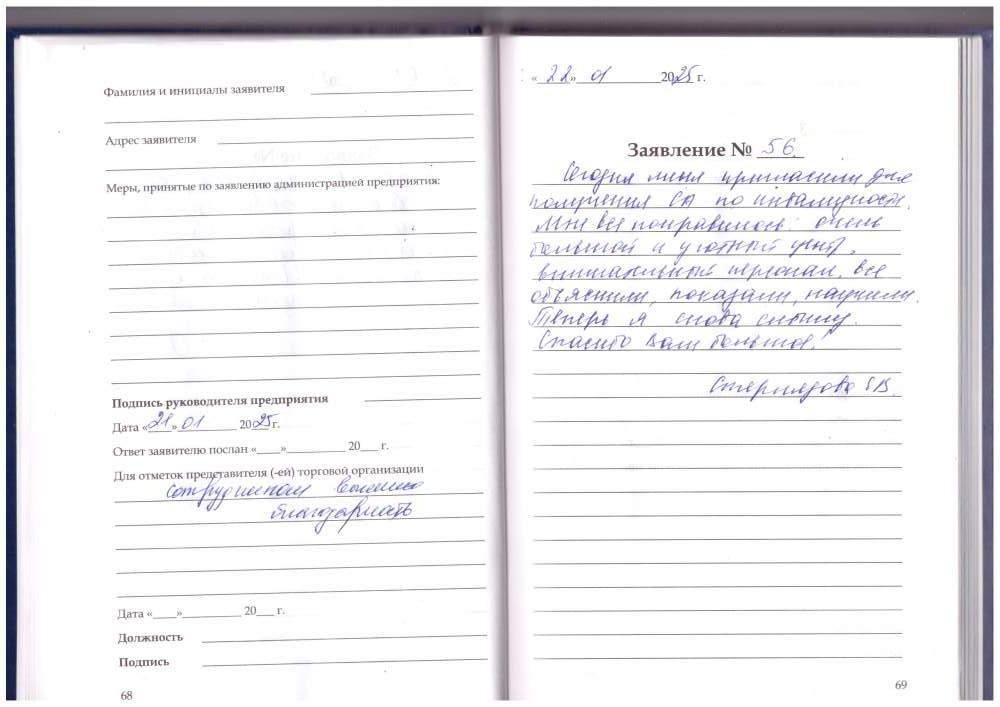 Фамилия и инициалы заявителя
Адрес заявителя
Меры, принятые по заявлению администрацией предприятия:
Подпись руководителя предприятия
Дата «21» 01 2025г.
Ответ заявителю послан «____»__________ 20___ г.
Для отметок представителя (-ей) торговой организации
сотрудникам вынесена
благодарность
Дата «____»__________ 20___ г.
Должность
Подпись
68
«22» 01 2025 г.
Заявление № 56.
Сегодня меня пригласили для
получения СА по инвалидности.
Мне все понравилось: очень
большой и уютный центр,
внимательный персонал, все
объяснили, показали, научили.
Теперь я снова слышу.
Спасибо Вам большое!
69